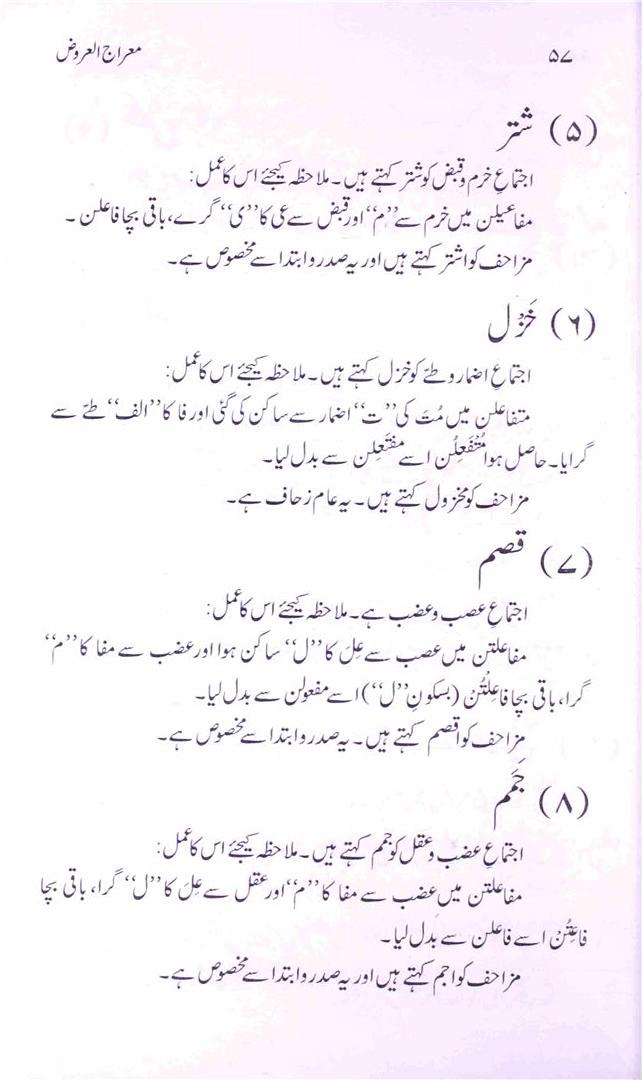 ۵۷ معراج العروض
(۵) شتر
اجتماعِ خرم و قبض کو شتر کہتے ہیں۔ ملاحظہ کیجئے اس کا عمل:
مفاعیلن میں خرم سے ’’م‘‘ اور قبض سے عی کا ’’ی‘‘ گرے، باقی بچا فاعلن ۔
مزاحف کو اشتر کہتے ہیں اور یہ صدر و ابتدا سے مخصوص ہے۔
(۶) خَزْل
اجتماعِ اضمار و طئے کو خزل کہتے ہیں۔ ملاحظہ کیجئے اس کا عمل:
متفاعلن میں مُتَ کی ’’ت‘‘ اضمار سے ساکن کی گئی اور فا کا ’’الف‘‘ طئے سے
گرایا۔ حاصل ہوا مُتْفَعِلُن اسے مفتَعِلن سے بدل لیا۔
مزاحف کو مخزول کہتے ہیں۔ یہ عام زحاف ہے۔
(۷) قصم
اجتماعِ عصب و عضب ہے۔ ملاحظہ کیجئے اس کا عمل:
مفاعلتن میں عصب سے عِلَ کا ’’ل‘‘ ساکن ہوا اور عضب سے مفا کا ’’م‘‘
گرا، باقی بچا فاعِلْتُنْ (بسکونِ ’’ل‘‘) اسے مفعولن سے بدل لیا۔
مزاحف کو اقصم کہتے ہیں۔ یہ صدر و ابتدا سے مخصوص ہے۔
(۸) جَمَم
اجتماعِ عضب و عقل کو جمم کہتے ہیں۔ ملاحظہ کیجئے اس کا عمل:
مفاعلتن میں عضب سے مفا کا ’’م‘‘ اور عقل سے عِلَ کا ’’ل‘‘ گرا، باقی بچا
فاعِتُنْ اسے فاعلن سے بدل لیا۔
مزاحف کو اجم کہتے ہیں اور یہ صدر و ابتدا سے مخصوص ہے۔